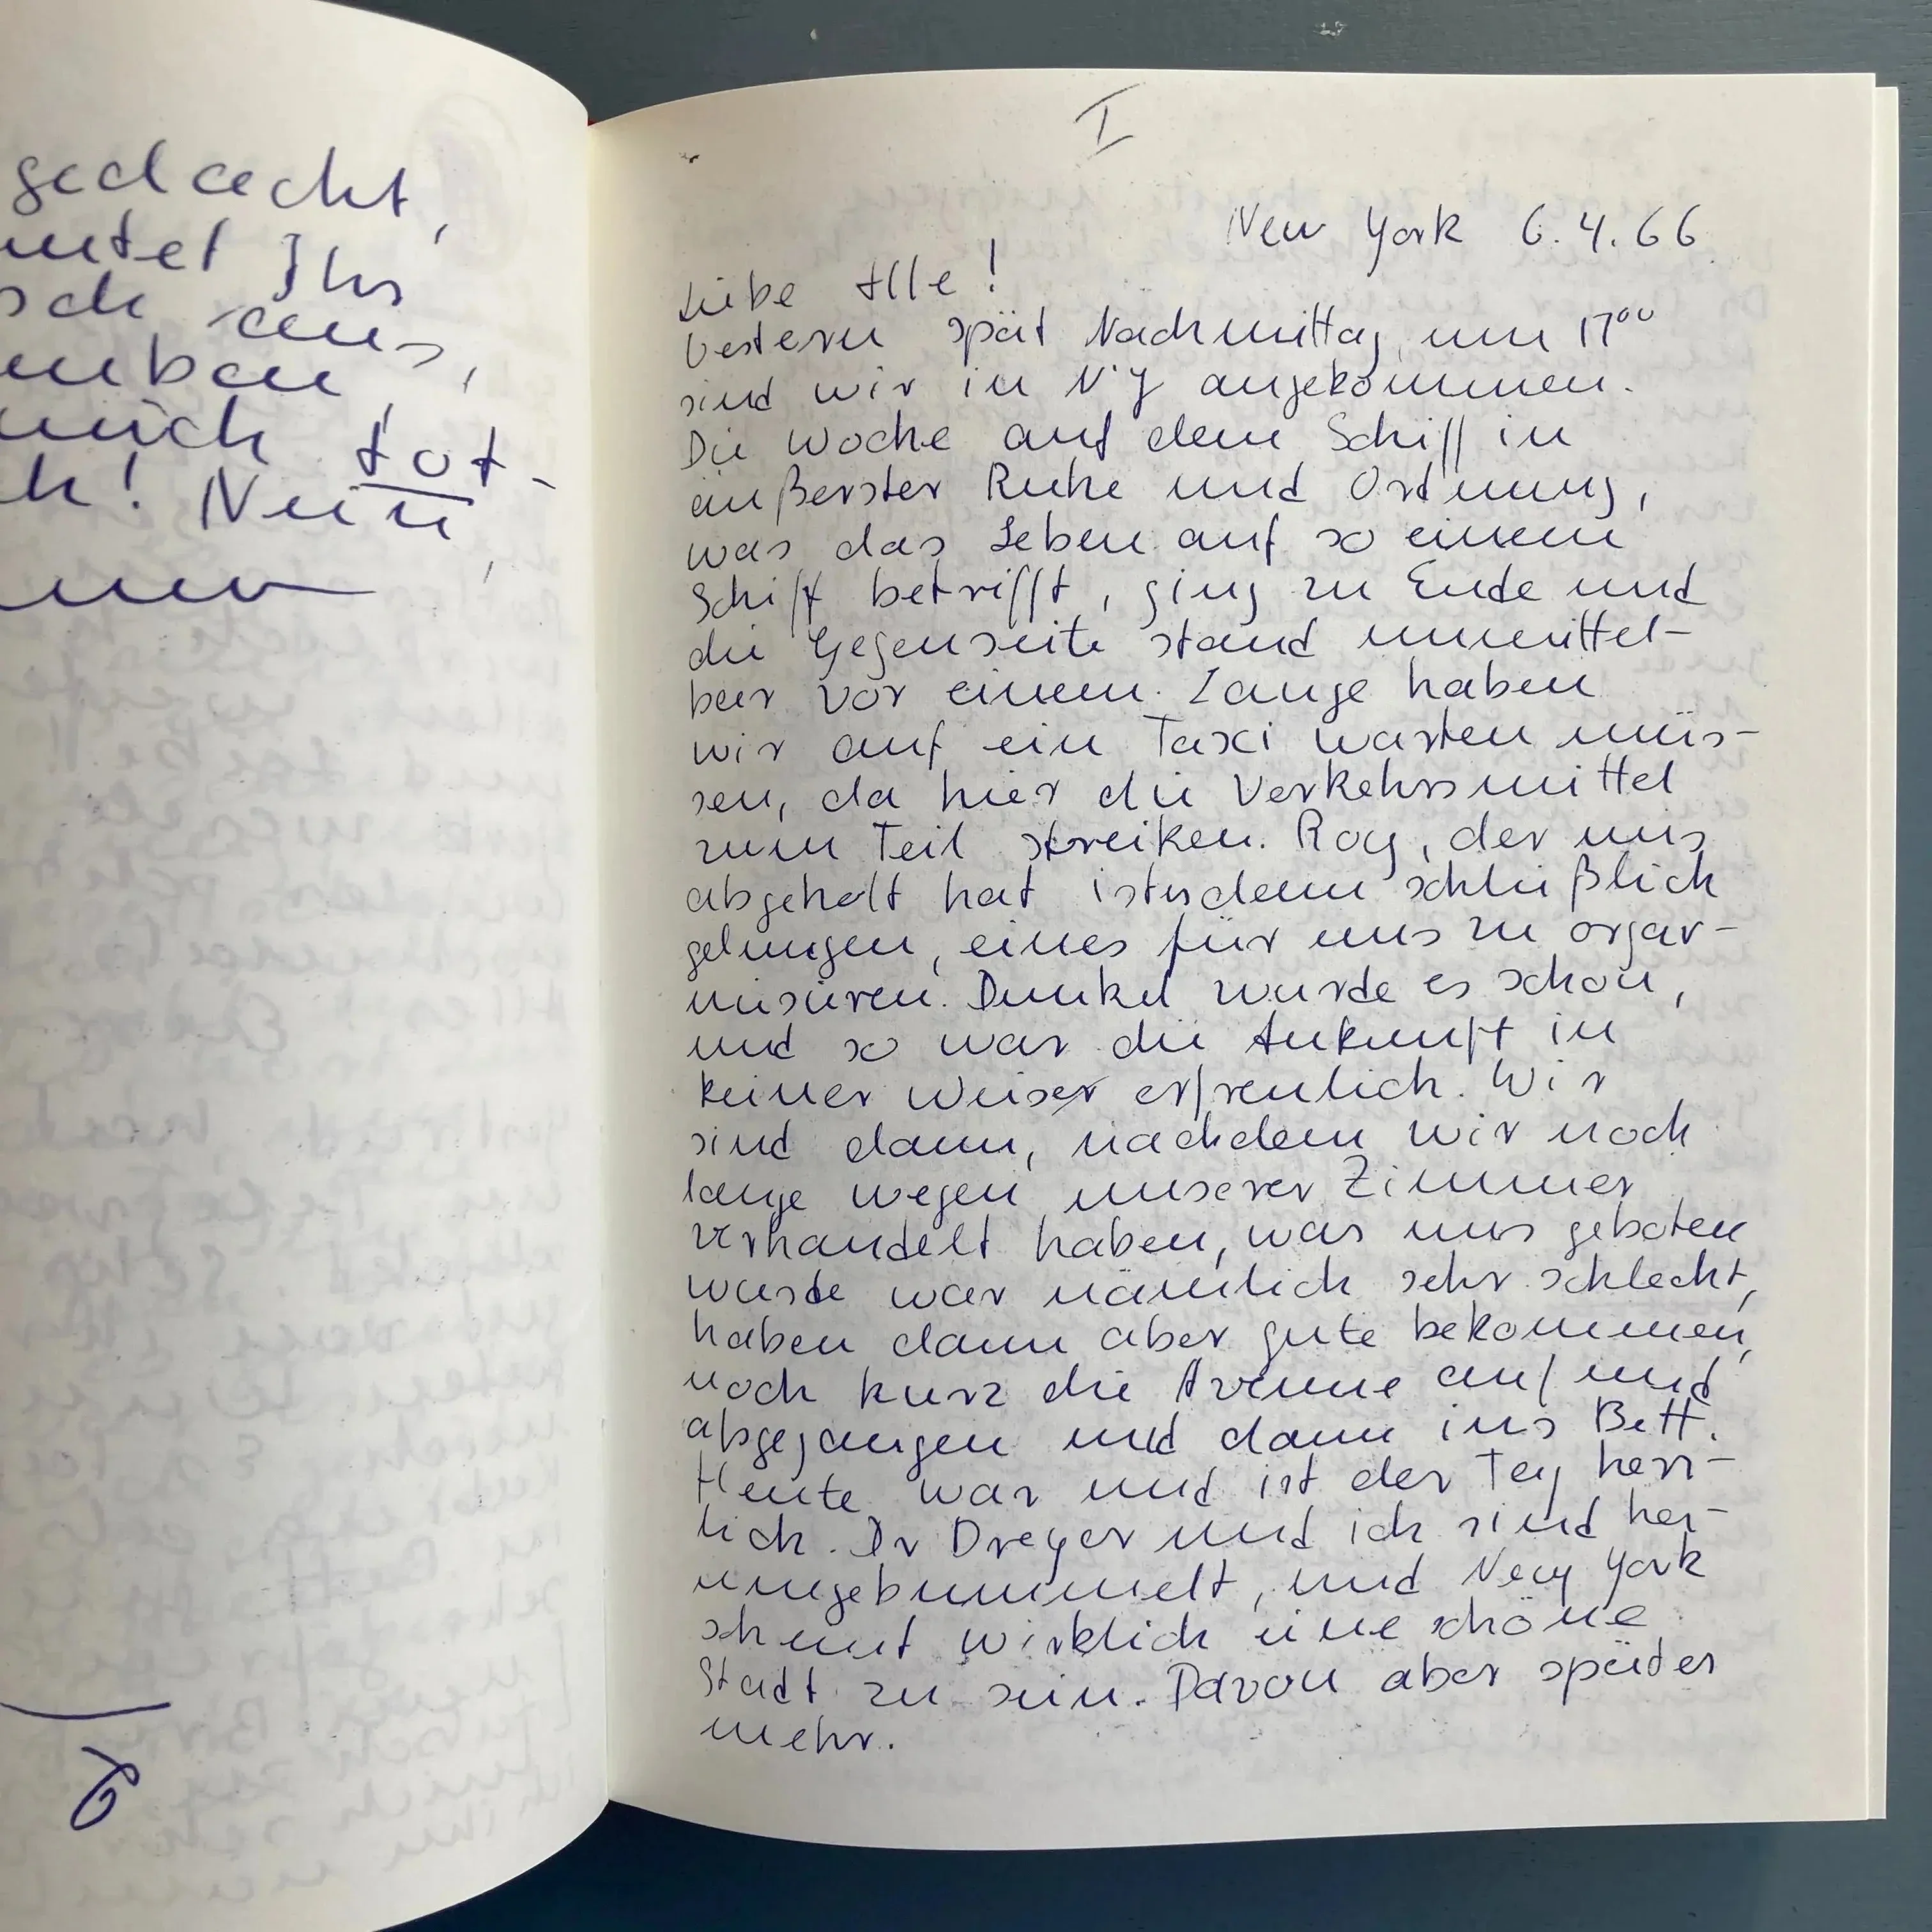 gedacht,
Ihr
aus,
mich tot-
! Nein,
I
New York 6.4.66.
Liebe Alle!
Gestern spät Nachmittag um 17⁰⁰
sind wir in N.Y angekommen.
Die Woche auf dem Schiff in
äußerster Ruhe und Ordnung,
was das Leben auf so einem
Schiff betrifft, ging zu Ende und
die Gegenseite stand unmittel-
bar vor einem. Lange haben
wir auf ein Taxi warten müs-
sen, da hier die Verkehrsmittel
zum Teil streiken. Roy, der uns
abgeholt hat dann schließlich
gelungen, eines für uns zu orgar-
nisieren. Dunkel wurde es schon,
und so war die Ankunft in
keiner Weiser erfreulich. Wir
sind dann, nachdem wir noch
lange wegen unserer Zimmer
verhandelt haben, was uns geboten
wurde war nämlich sehr schlecht,
haben dann aber gute bekommen,
noch kurz die Avenue auf und
abgegangen und dann ins Bett.
Heute war und ist der Tag herr-
lich. Dr Dreyer und ich sind her-
umgebummelt, und New York
scheint wirklich eine schöne
Stadt zu sein. Davon aber später
mehr.